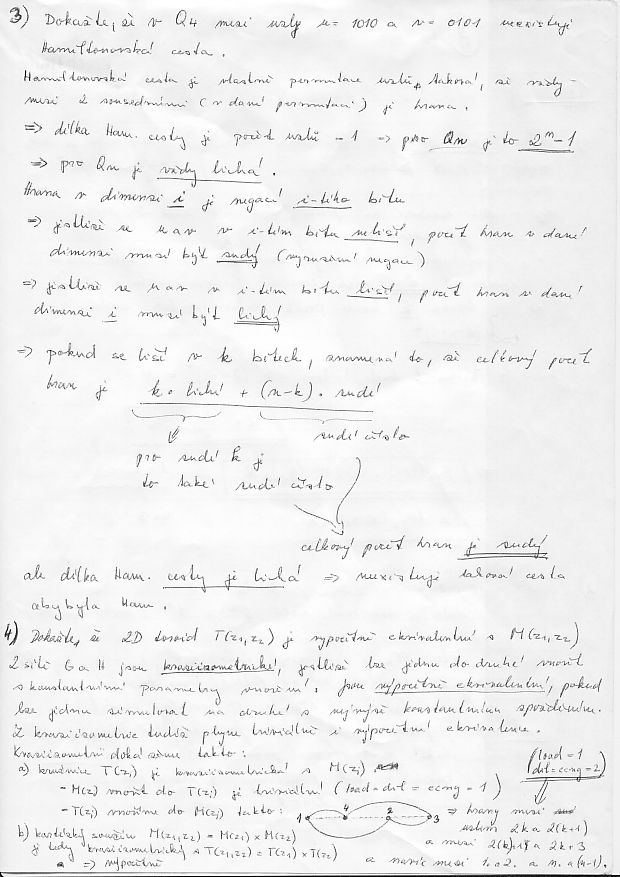 3) Dokažte, že v Q4 mezi uzly u = 1010 a v = 0101 neexistuje
Hamiltonovská cesta.
Hamiltonovská cesta je vlastně permutace uzlů, taková, že vždy
mezi 2 sousedními (v dané permutaci) je hrana.
=> délka Ham. cesty je počet uzlů -1 => pro Qn je to 2^n-1
=> pro Qn je vždy lichá.
Hrana v dimenzi i je negací i-tého bitu
=> jestliže se u a v v i-tém bitu neliší, počet hran v dané
dimenzi musí být sudý (vyrušení negace)
=> jestliže se u a v v i-tém bitu liší, počet hran v dané
dimenzi i musí být lichý
=> pokud se liší v k bitech, znamená to, že celkový počet
hran je k · liché + (n-k) · sudé
sudé číslo
pro sudé k je
to také sudé číslo
celkový počet hran je sudý
ale délka Ham. cesty je lichá => neexistuje taková cesta
aby byla Ham.
4) Dokažte, že 2D toroid T(z1,z2) je výpočetně ekvivalentní s M(z1,z2)
2 sítě G a H jsou kvaziizometrické, jestliže lze jednu do druhé vnořit
s konstantními parametry vnoření. Jsou výpočetně ekvivalentní, pokud
lze jednu simulovat na druhé s nejvýše konstantním zpožděním.
Z kvaziizometrie tudíž plyne triviálně i výpočetní ekvivalence.
Kvaziizometrii dokážeme takto:
a) kružnice T(zi) je kvaziizometrická s M(zi)
load = 1
dil = ecng = 2
- M(z) vnoř do T(zi) je triviální (load = dil = ecng = 1)
- T(zi) vnoříme do M(zi) takto:
1 4 2 3
=> hrany mezi
uzlem 2k a 2(k+1)
a mezi 2(k)+1 a 2k+3
a navíc mezi 1. a 2. a n. a (n-1).
b) kartézský součin M(z1,z2) = M(z1) x M(z2)
je tedy kvaziizometrický s T(z1,z2) = T(z1) x T(z2)
=> výpočetně